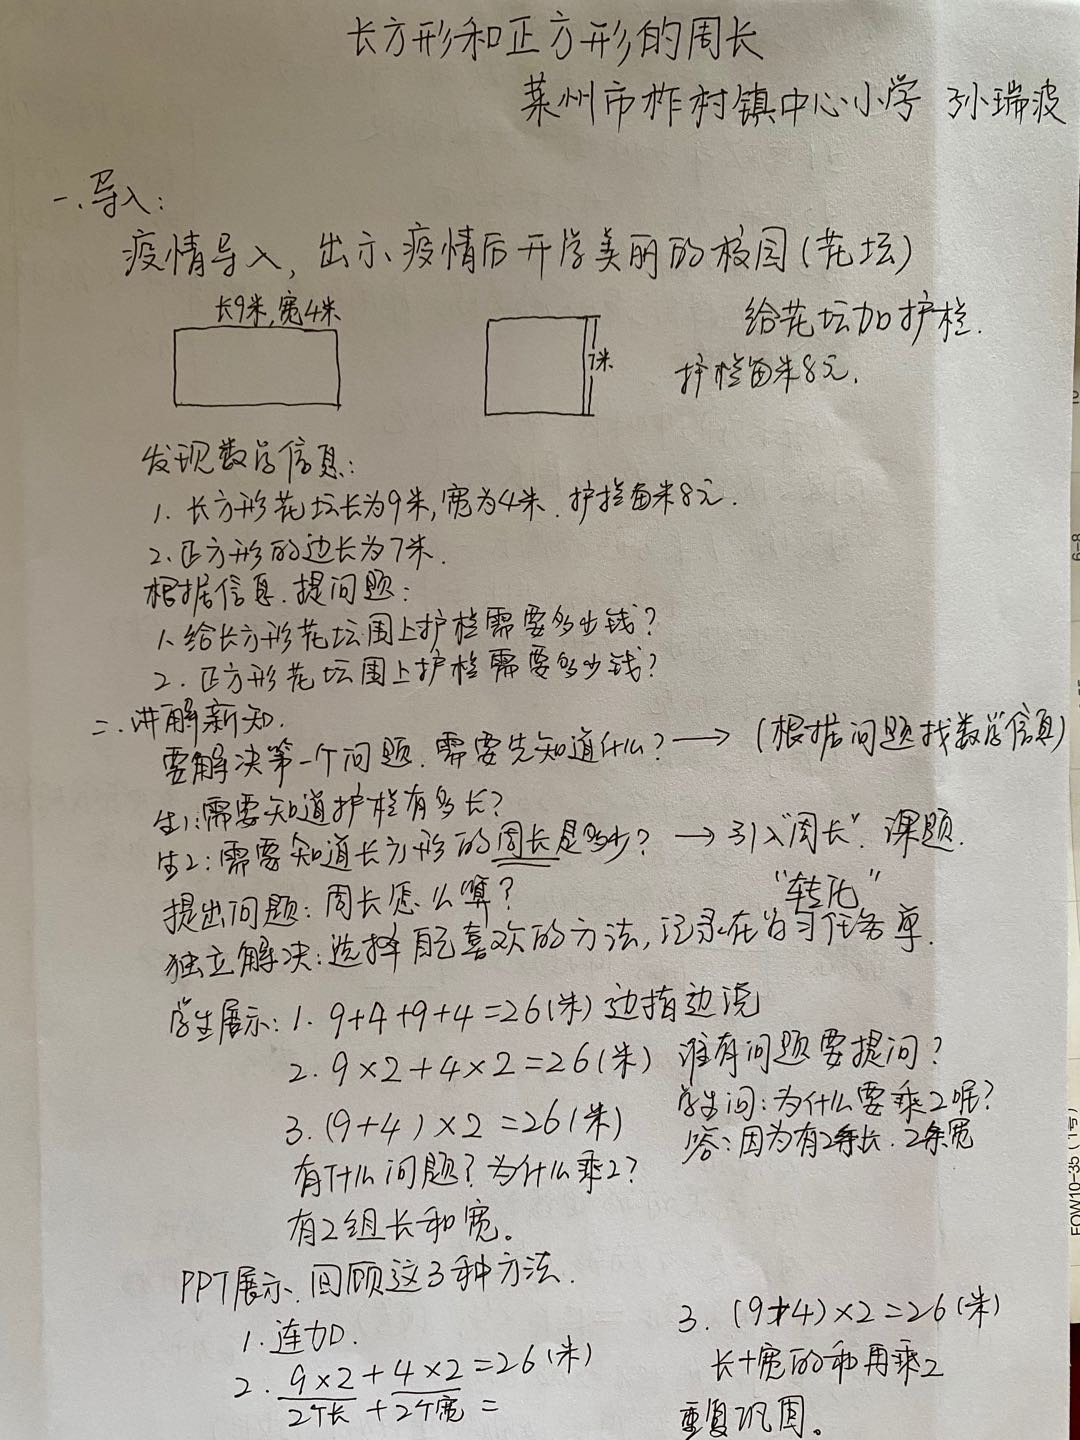 长方形和正方形的周长
莱州市柞村镇中心小学 孙瑞波
一.导入:
疫情导入, 出示疫情后开学美丽的校园(花坛)
长9米,宽4米
给花坛加护栏.
7米
护栏每米8元.
发现数学信息:
1. 长方形花坛长为9米,宽为4米. 护栏每米8元.
2.正方形的边长为7米.
根据信息.提问题:
1.给长方形花坛围上护栏需要多少钱?
2. 正方形花坛围上护栏需要多少钱?
二.讲解新知.
要解决第一个问题.需要先知道什么? → (根据问题找数学信息)
生1:需要知道护栏有多长?
生2:需要知道长方形的周长是多少? → 引入"周长". 课题.
提出问题: 周长怎么算? "转化"
独立解决:选择自己喜欢的方法,记录在学习任务单.
学生展示: 1. 9+4+9+4=26(米) 边指边说
2. 9×2+4×2=26(米) 谁有问题要提问?
学生问:为什么要乘2呢?
3. (9+4)×2=26(米)
答:因为有2条长.2条宽
有什么问题?为什么乘2?
有2组长和宽。
PPT展示.回顾这3种方法.
1.连加.
2. 9×2+4×2=26(米)
2个长+2个宽=
3. (9+4)×2=26(米)
长+宽的和再乘2
重复巩固。
6-8
EQW10-35(1号)